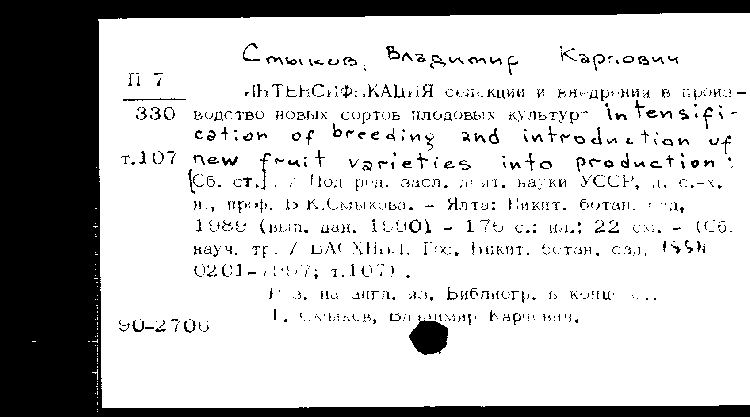 Смыков, Владимир Карпович
П 7
ИНТЕНСИФИКАЦИЯ селекции и внедрения в произ-
330 водство новых сортов плодовых культур = intensifi-
cation of breeding and introduction of
т.107 new fruit varieties into production:
[Сб. ст.]. / Под ред. засл. деят. науки УССР, д. с.-х.
н., проф. В.К.Смыкова. - Ялта: Никит. ботан. сад,
1989 (вып. дан. 1990) - 176 с.: ил.; 22 см. - (Сб.
науч. тр. / ВАСХНИЛ, Гос. Никит. ботан. сад, ISSN
0201-7997; т.107).
Рез. на англ. яз. Библиогр. в конце
I. Смыков, Владимир Карпович.
90-2706